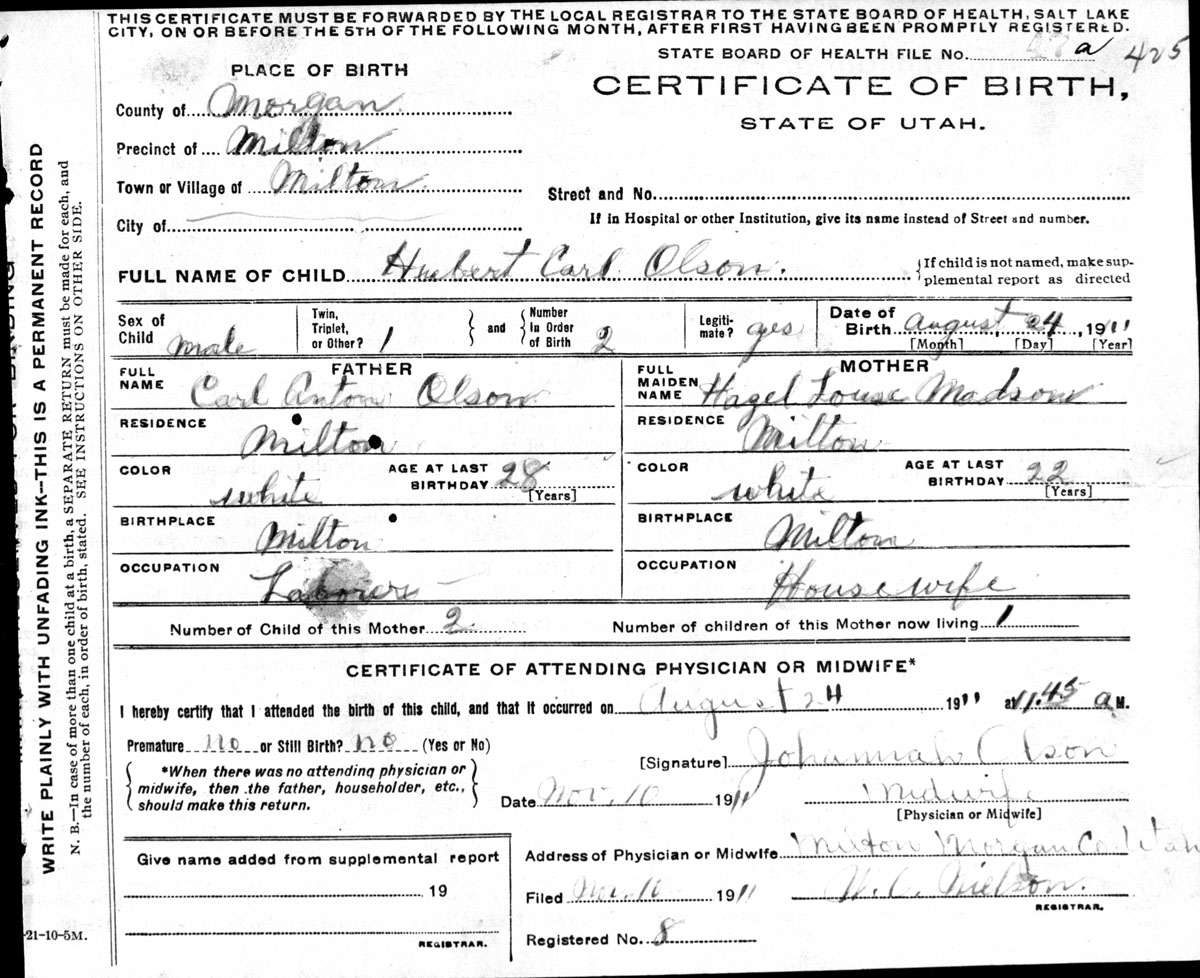 THIS CERTIFICATE MUST BE FORWARDED BY THE LOCAL REGISTRAR TO THE STATE BOARD OF HEALTH, SALT LAKE
CITY, ON OR BEFORE THE 5TH OF THE FOLLOWING MONTH, AFTER FIRST HAVING BEEN PROMPTLY REGISTERED.
STATE BOARD OF HEALTH FILE No. a 425
PLACE OF BIRTH
CERTIFICATE OF BIRTH,
STATE OF UTAH.
County of Morgan
Precinct of Milton
Town or Village of Milton
Street and No.
City of
If in Hospital or other Institution, give its name instead of Street and number.
FULL NAME OF CHILD Hubert Carl Olson.
If child is not named, make sup-
plemental report as directed
Sex of Child male
Twin, Triplet, or Other? 1
and Number In Order of Birth 2
Legiti- mate? yes
Date of Birth August 24, 1911
[Month] [Day] [Year]
FATHER
FULL NAME Carl Anton Olson
RESIDENCE Milton
COLOR white AGE AT LAST BIRTHDAY 28 [Years]
BIRTHPLACE Milton
OCCUPATION Laborer
MOTHER
FULL MAIDEN NAME Hazel Louse Madson
RESIDENCE Milton
COLOR white AGE AT LAST BIRTHDAY 22 [Years]
BIRTHPLACE Milton
OCCUPATION Housewife
Number of Child of this Mother 2 Number of children of this Mother now living 1
CERTIFICATE OF ATTENDING PHYSICIAN OR MIDWIFE*
I hereby certify that I attended the birth of this child, and that it occurred on August 24 1911 at 11.45 a M.
Premature no or Still Birth? no (Yes or No)
*When there was no attending physician or
midwife, then the father, householder, etc.,
should make this return.
[Signature] Johannah Olson
Date Nov. 10 1911 Midwife
[Physician or Midwife]
Give name added from supplemental report
19
REGISTRAR.
Address of Physician or Midwife Milton Morgan Co. Utah
Filed Nov. 10 1911 W. C. Nielson.
REGISTRAR.
Registered No. 8
-21-10-5M.
WRITE PLAINLY WITH UNFADING INK—THIS IS A PERMANENT RECORD
N. B.—In case of more than one child at a birth, a SEPARATE RETURN must be made for each, and
the number of each, in order of birth, stated. SEE INSTRUCTIONS ON OTHER SIDE.